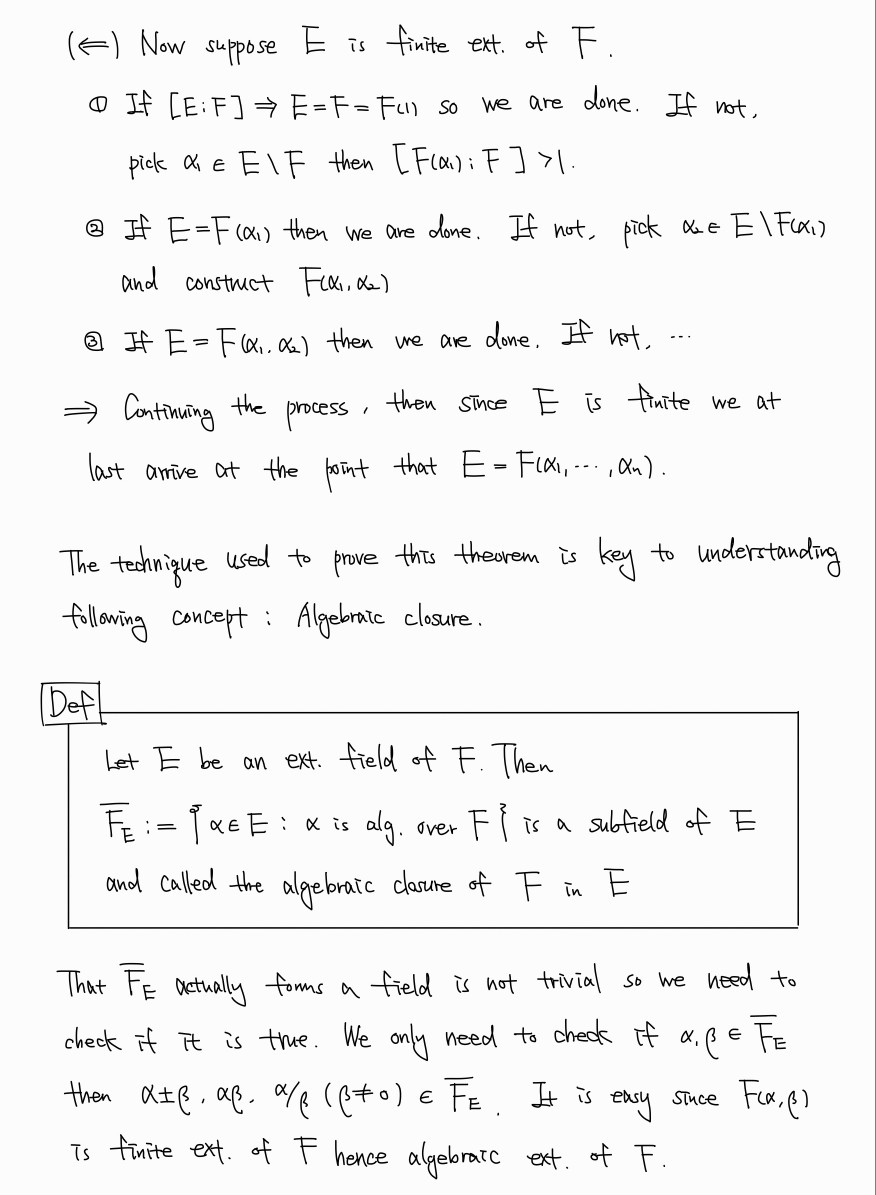 (⇐) Now suppose E is finite ext. of F.
① If [E:F] ⇒ E=F=F(1) so we are done. If not,
pick α₁ ∈ E\F then [F(α₁):F] >1.
② If E=F(α₁) then we are done. If not, pick α₂ ∈ E\F(α₁)
and construct F(α₁,α₂)
③ If E=F(α₁,α₂) then we are done. If not, ⋯
⇒ Continuing the process, then since E is finite we at
last arrive at the point that E = F(α₁,⋯,αₙ).
The technique used to prove this theorem is key to understanding
following concept : Algebraic closure.
Def
Let E be an ext. field of F. Then
F̅_E := {α∈E : α is alg. over F} is a subfield of E
and called the algebraic closure of F in E
That F̅_E actually forms a field is not trivial so we need to
check if it is true. We only need to check if α,β ∈ F̅_E
then α±β, αβ, α/β (β≠0) ∈ F̅_E. It is easy since F(α,β)
is finite ext. of F hence algebraic ext. of F.